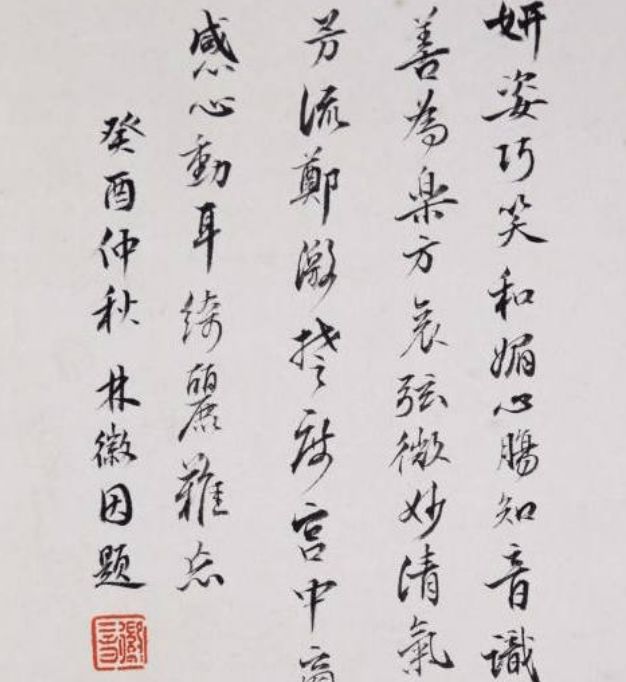 妍姿巧笑和媚心腸知音識
善為樂方哀弦微妙清氣
芳流鄭激楚度宮中商
感心動耳綺麗難忘
癸酉仲秋 林徽因題
徽音